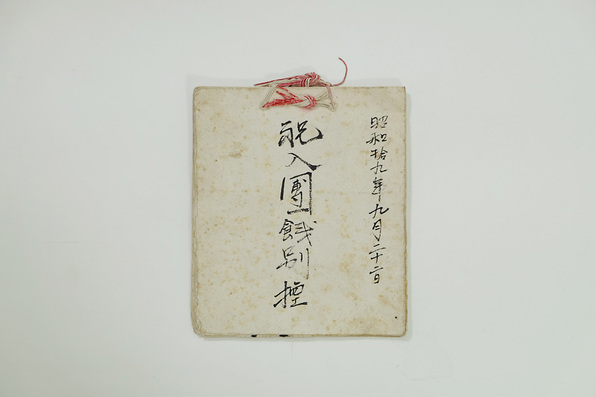 昭和拾九年九月二十二日
祝入團餞別控